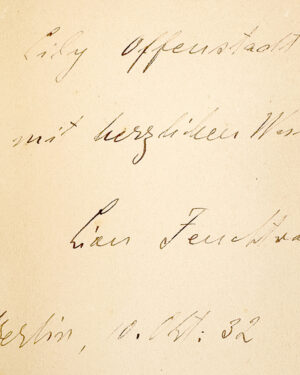 Lily Offenstadt
mit herzlichen
Lion Feuchtwa
Berlin, 10. Okt: 32